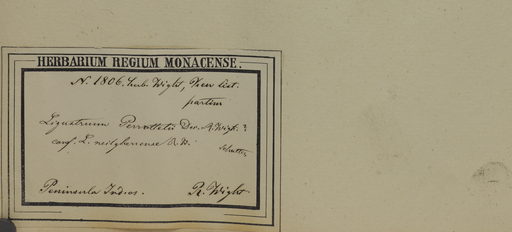 HERBARIUM REGIUM MONACENSE.
N. 1806. herb. Wight, Kew list.
partim
Ligustrum Perrottetii Dec. R. Wight ?
conf. L. neilgherrense R. W.
Peninsula Ind. or.
R. Wight